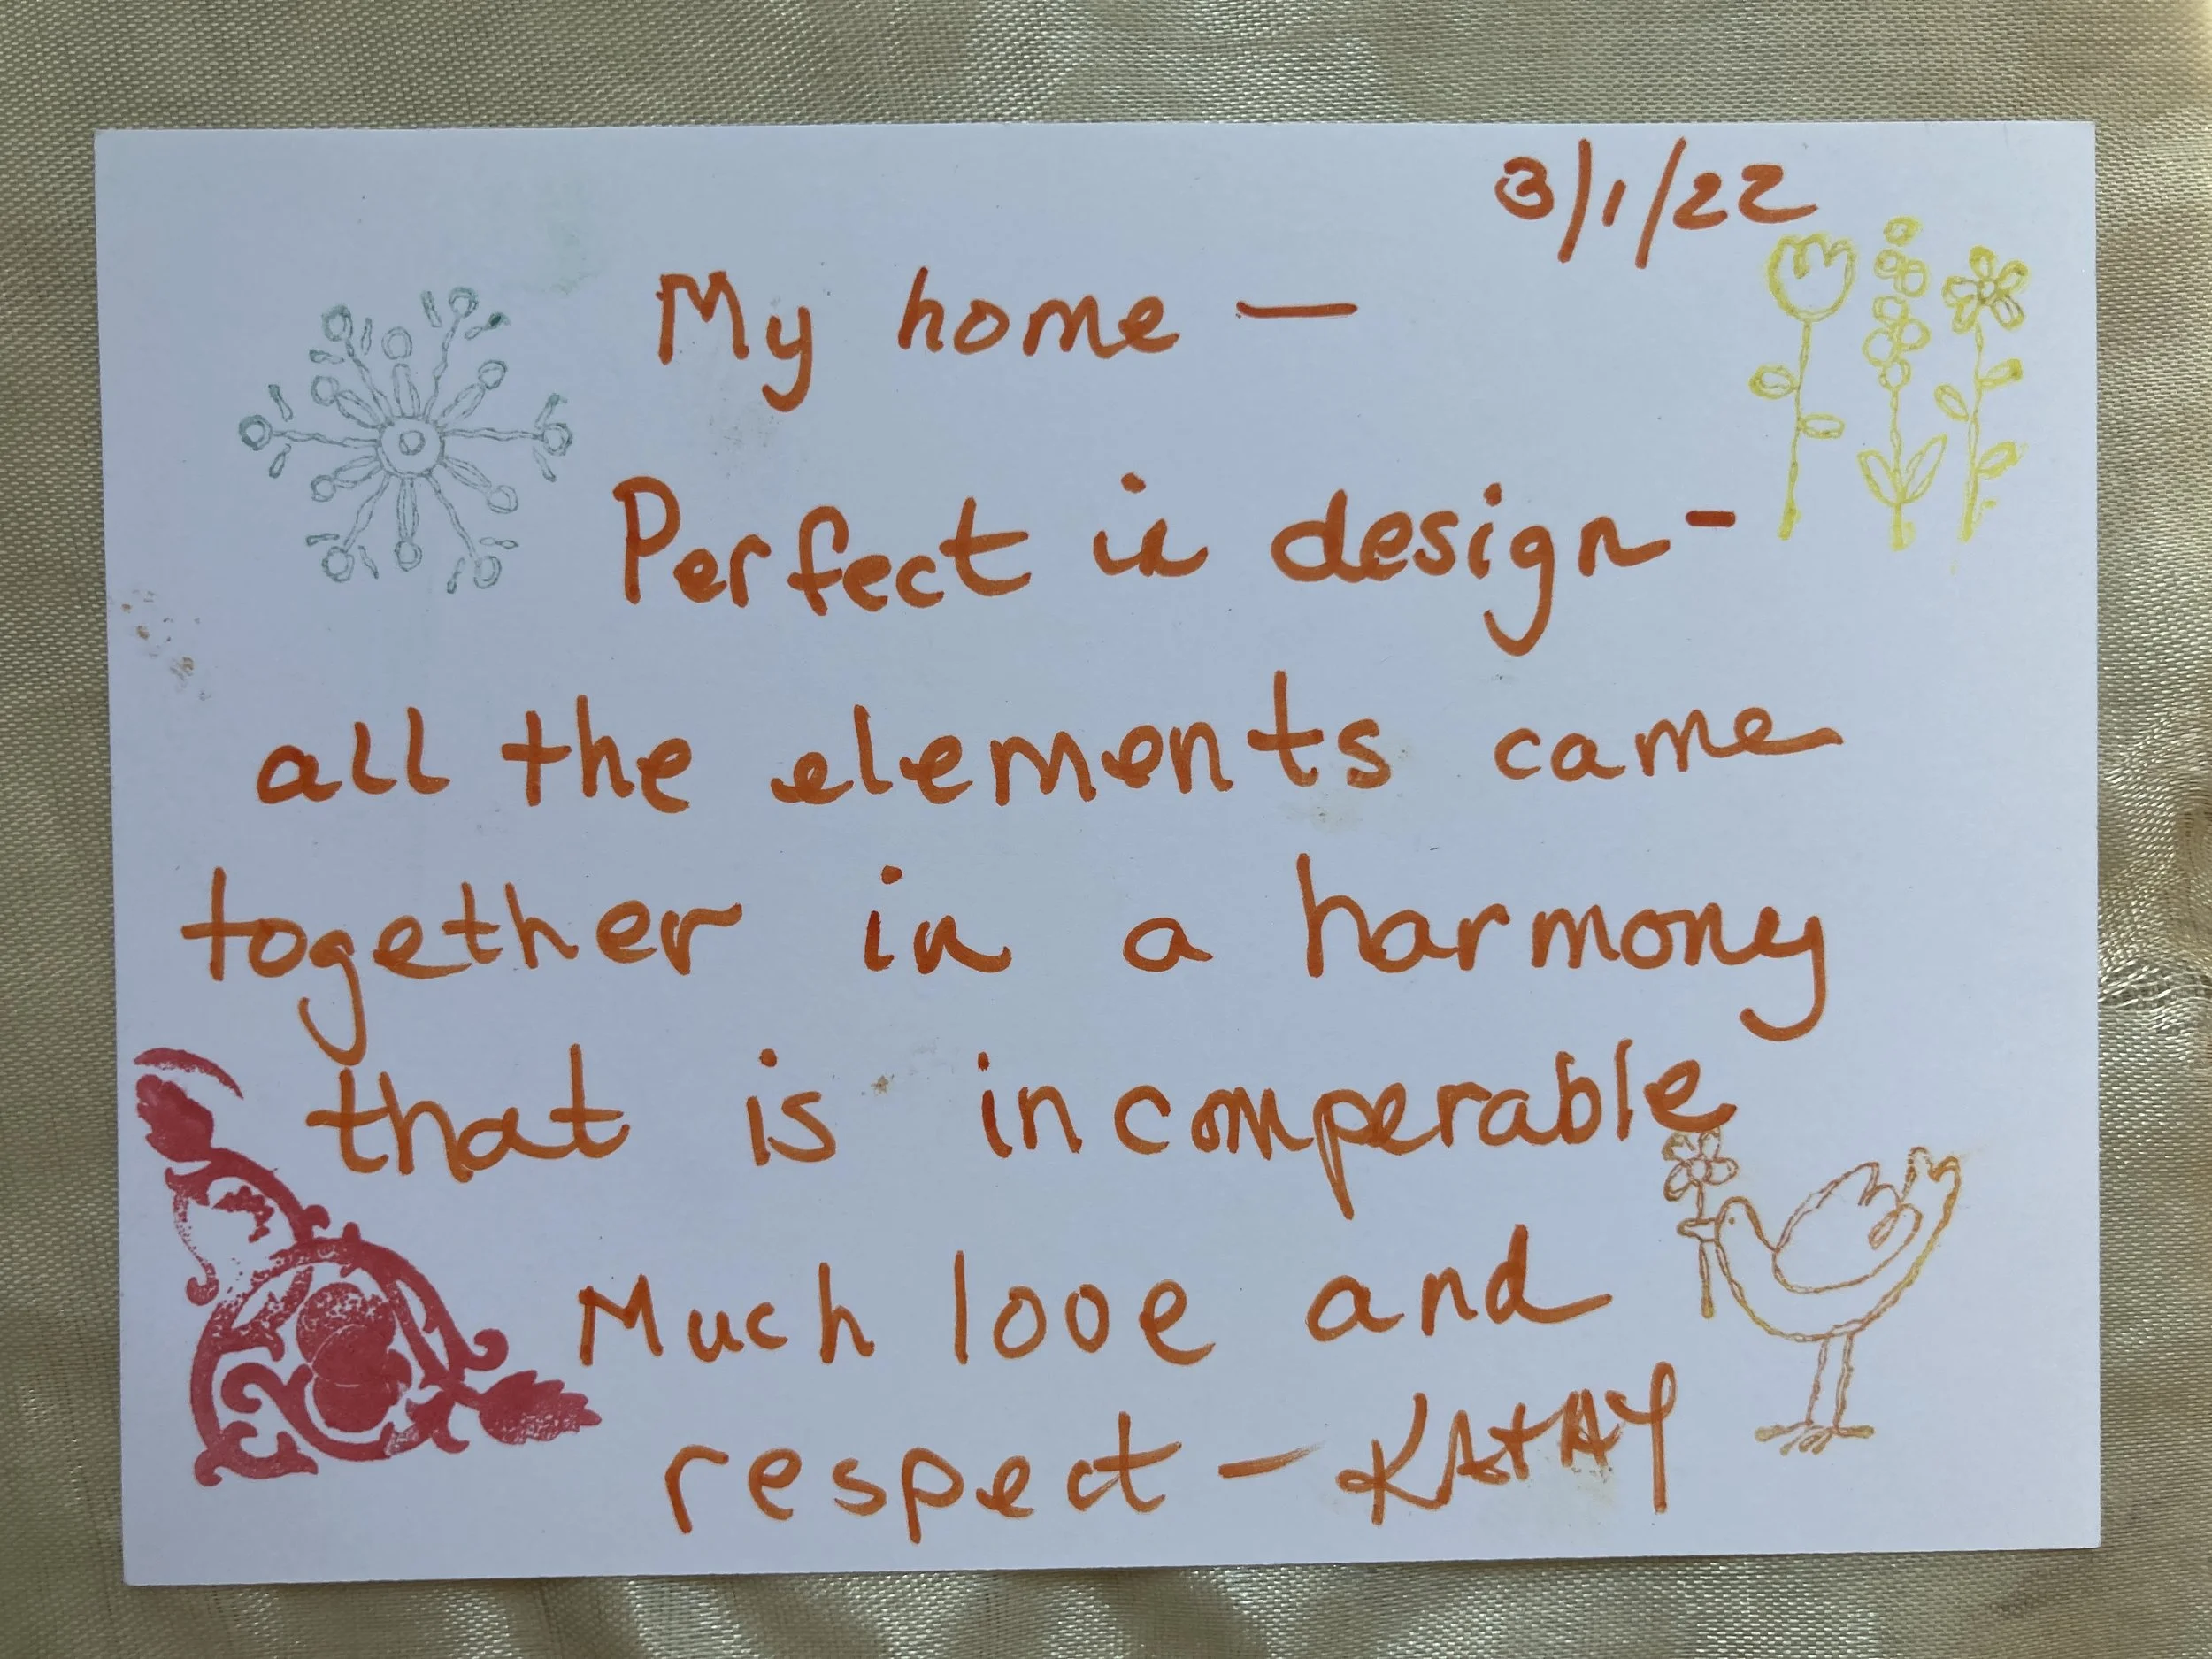 3/1/22
My home —
Perfect in design -
all the elements came
together in a harmony
that is incomperable
Much love and
respect - KAtHY